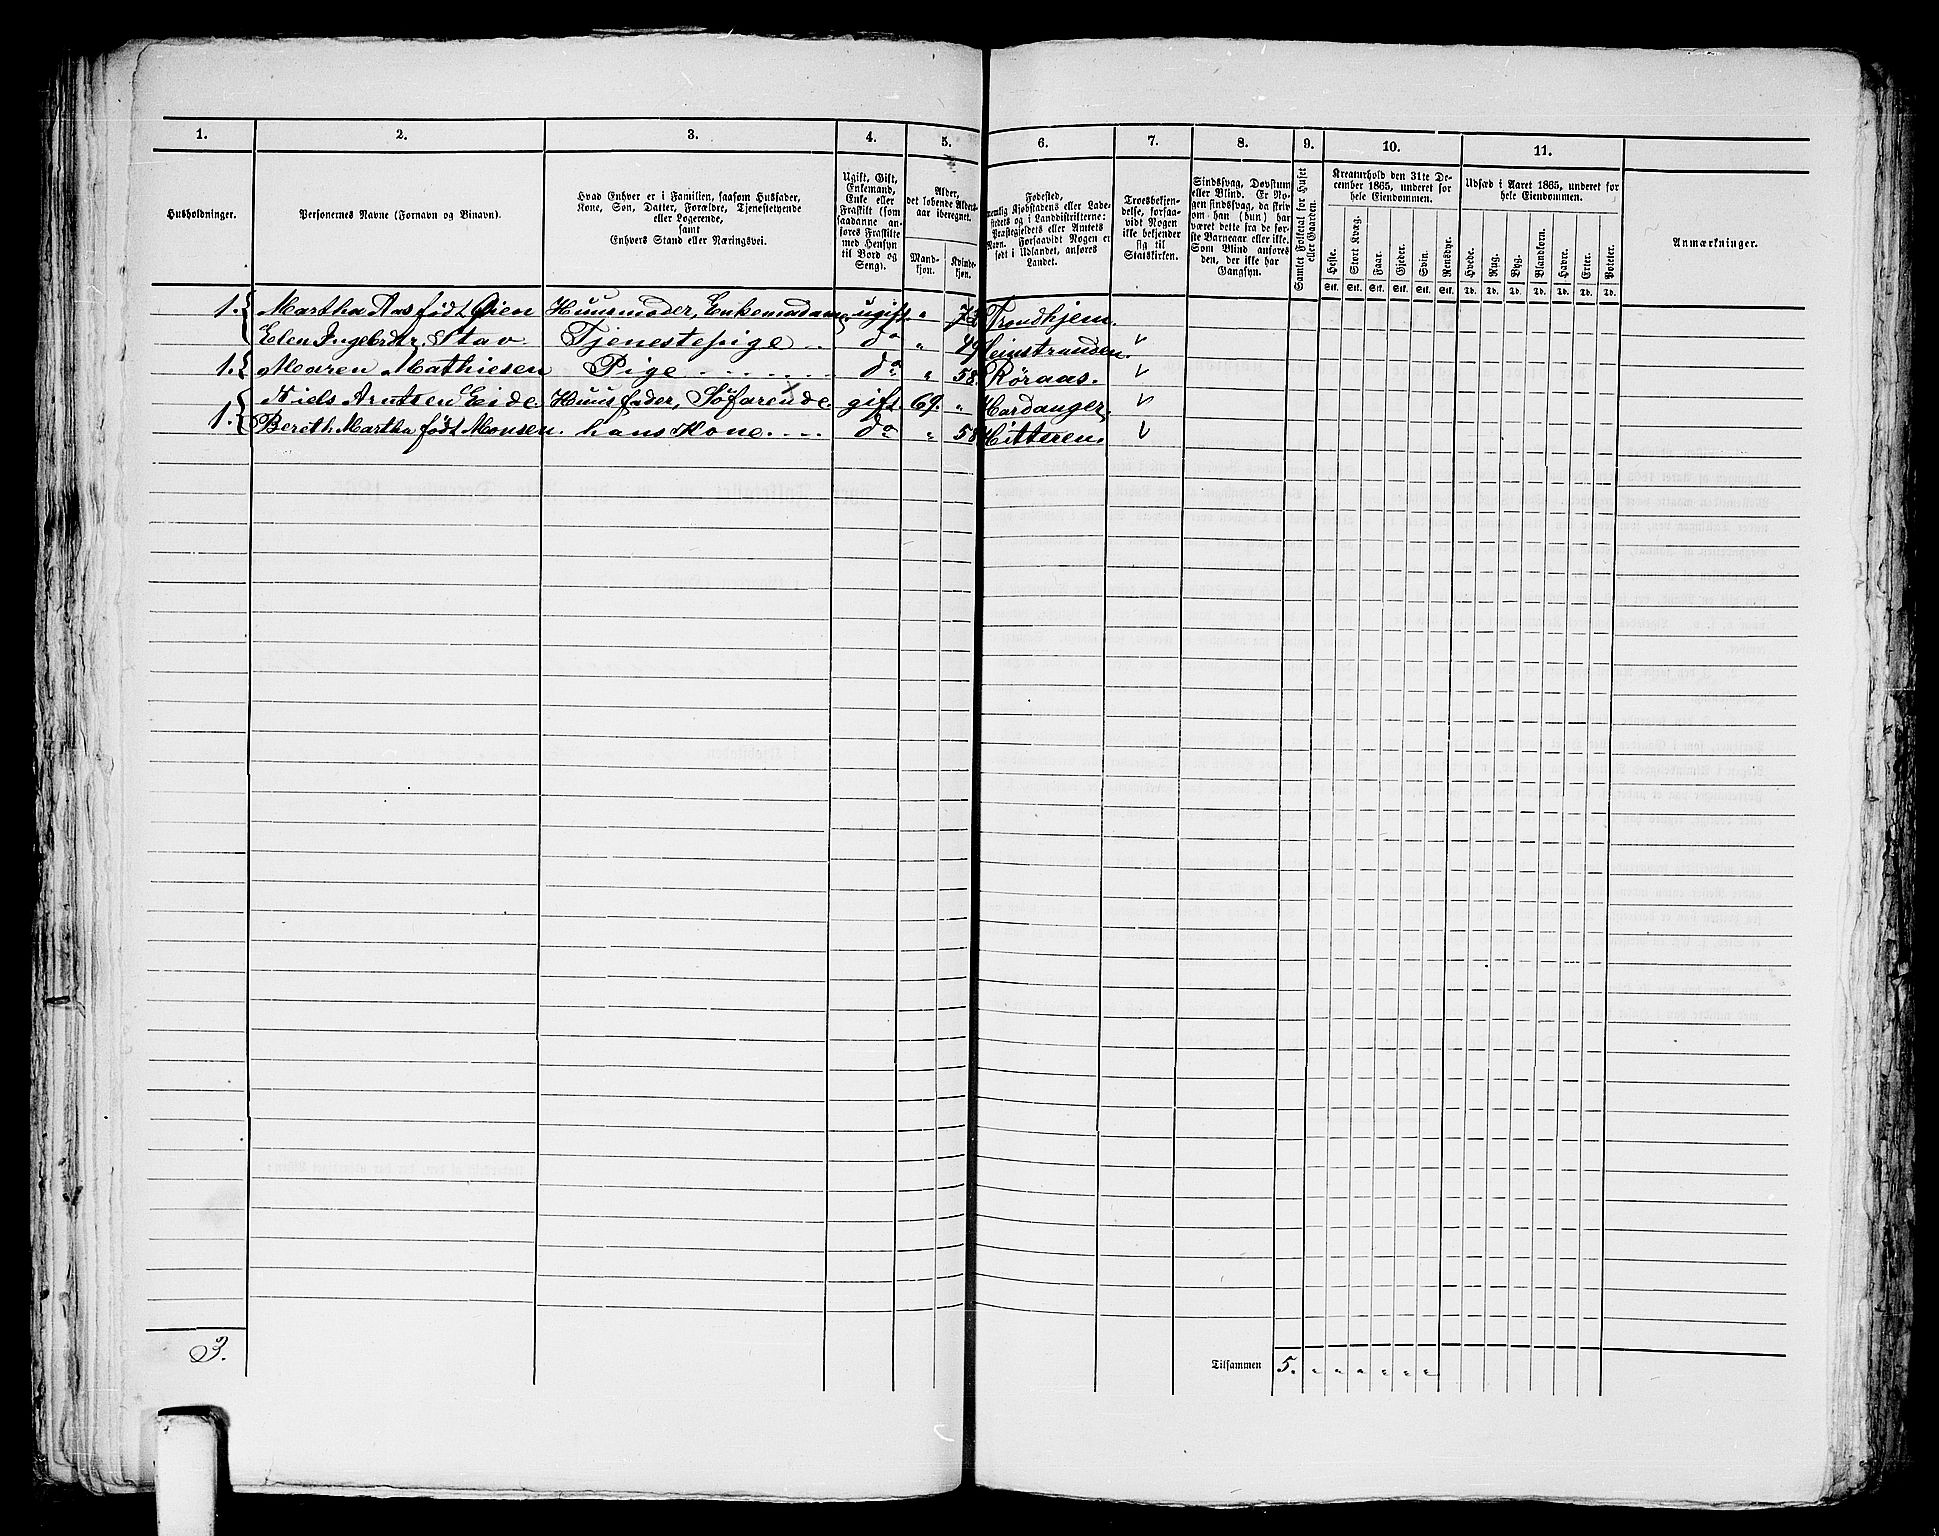 1. 2. 3. 4. 5. 6. 7. 8. 9. 10. 11.
Husholdninger.
Personernes Navne (Fornavn og Binavn).
Hvad Enhver er i Familien, saasom Husfader,
Kone, Søn, Datter, Forældre, Tjenestetyende
eller Logerende,
samt
Enhvers Stand eller Næringsvei.
Ugift, Gift,
Enkemand,
Enke eller
Fraskilt (som
saadanne an-
føres Fraskilte
med Hensyn
til Bord og
Seng).
Alder,
det løbende Alders-
aar iberegnet.
Mand-
kjøn.
Kvinde-
kjøn.
Fødested,
nemlig Kjøbstadens eller Lade-
stedets og i Landdistrikterne:
Præstegjeldets eller Amtets
Navn. Forsaavidt Nogen er
født i Udlandet, anføres
Landet.
Troesbekjen-
delse, forsaa-
vidt Nogen
ikke bekjender
sig til
Statskirken.
Sindssvag, Døvstum
eller Blind. Er No-
gen sindssvag, da skriv
om han (hun) har
været dette fra de før-
ste Barneaar eller ikke.
Som Blind anføres
den, der ikke har
Gangsyn.
Samlet Folketal for Huset
eller Gaarden.
Kreaturhold den 31te De-
cember 1865, underet for
hele Eiendommen.
Heste. Stort Kvæg. Faar. Gjeder. Svin. Rensdyr.
Stk. Stk. Stk. Stk. Stk. Stk.
Udsæd i Aaret 1865, underet for
hele Eiendommen.
Hvede. Rug. Byg. Blandkorn. Havre. Erter. Poteter.
Td. Td. Td. Td. Td. Td. Td.
Anmærkninger.
1. Martha Aas født Øien Huusmoder, Enkemadame ugift. " 73 Trondhjem.
Elen Ingebrdtr. Stav Tjenestepige .. do " 49 Leinstranden. v
1. Maren Mathiesen Pige ...... do " 58. Røraas. v
1. Niels Arntsen Eide. Huusfader, Søfarende. gift. 69. " Hardanger v
Bereth Martha født Monsen. hans Kone .... do " 58 Hitteren. v
3.
Tilsammen 5. " " " " " "